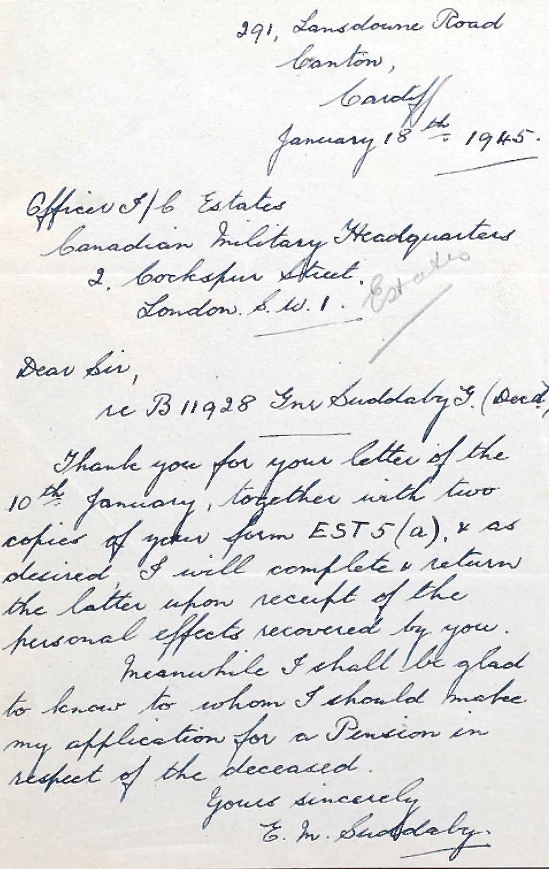 291, Lansdowne Road
Canton,
Cardiff
January 18th 1945.
Officer I/C Estates
Canadian Military Headquarters
2. Cockspur Street.
London. S.W.1.
Estates
Dear Sir,
re B 11928 Gnr Suddaby G. (Decd.)
Thank you for your letter of the
10th January, together with two
copies of your form EST 5(a), & as
desired, I will complete & return
the latter upon receipt of the
personal effects recovered by you.
Meanwhile I shall be glad
to know to whom I should make
my application for a Pension in
respect of the deceased.
Yours sincerely
E. M. Suddaby.